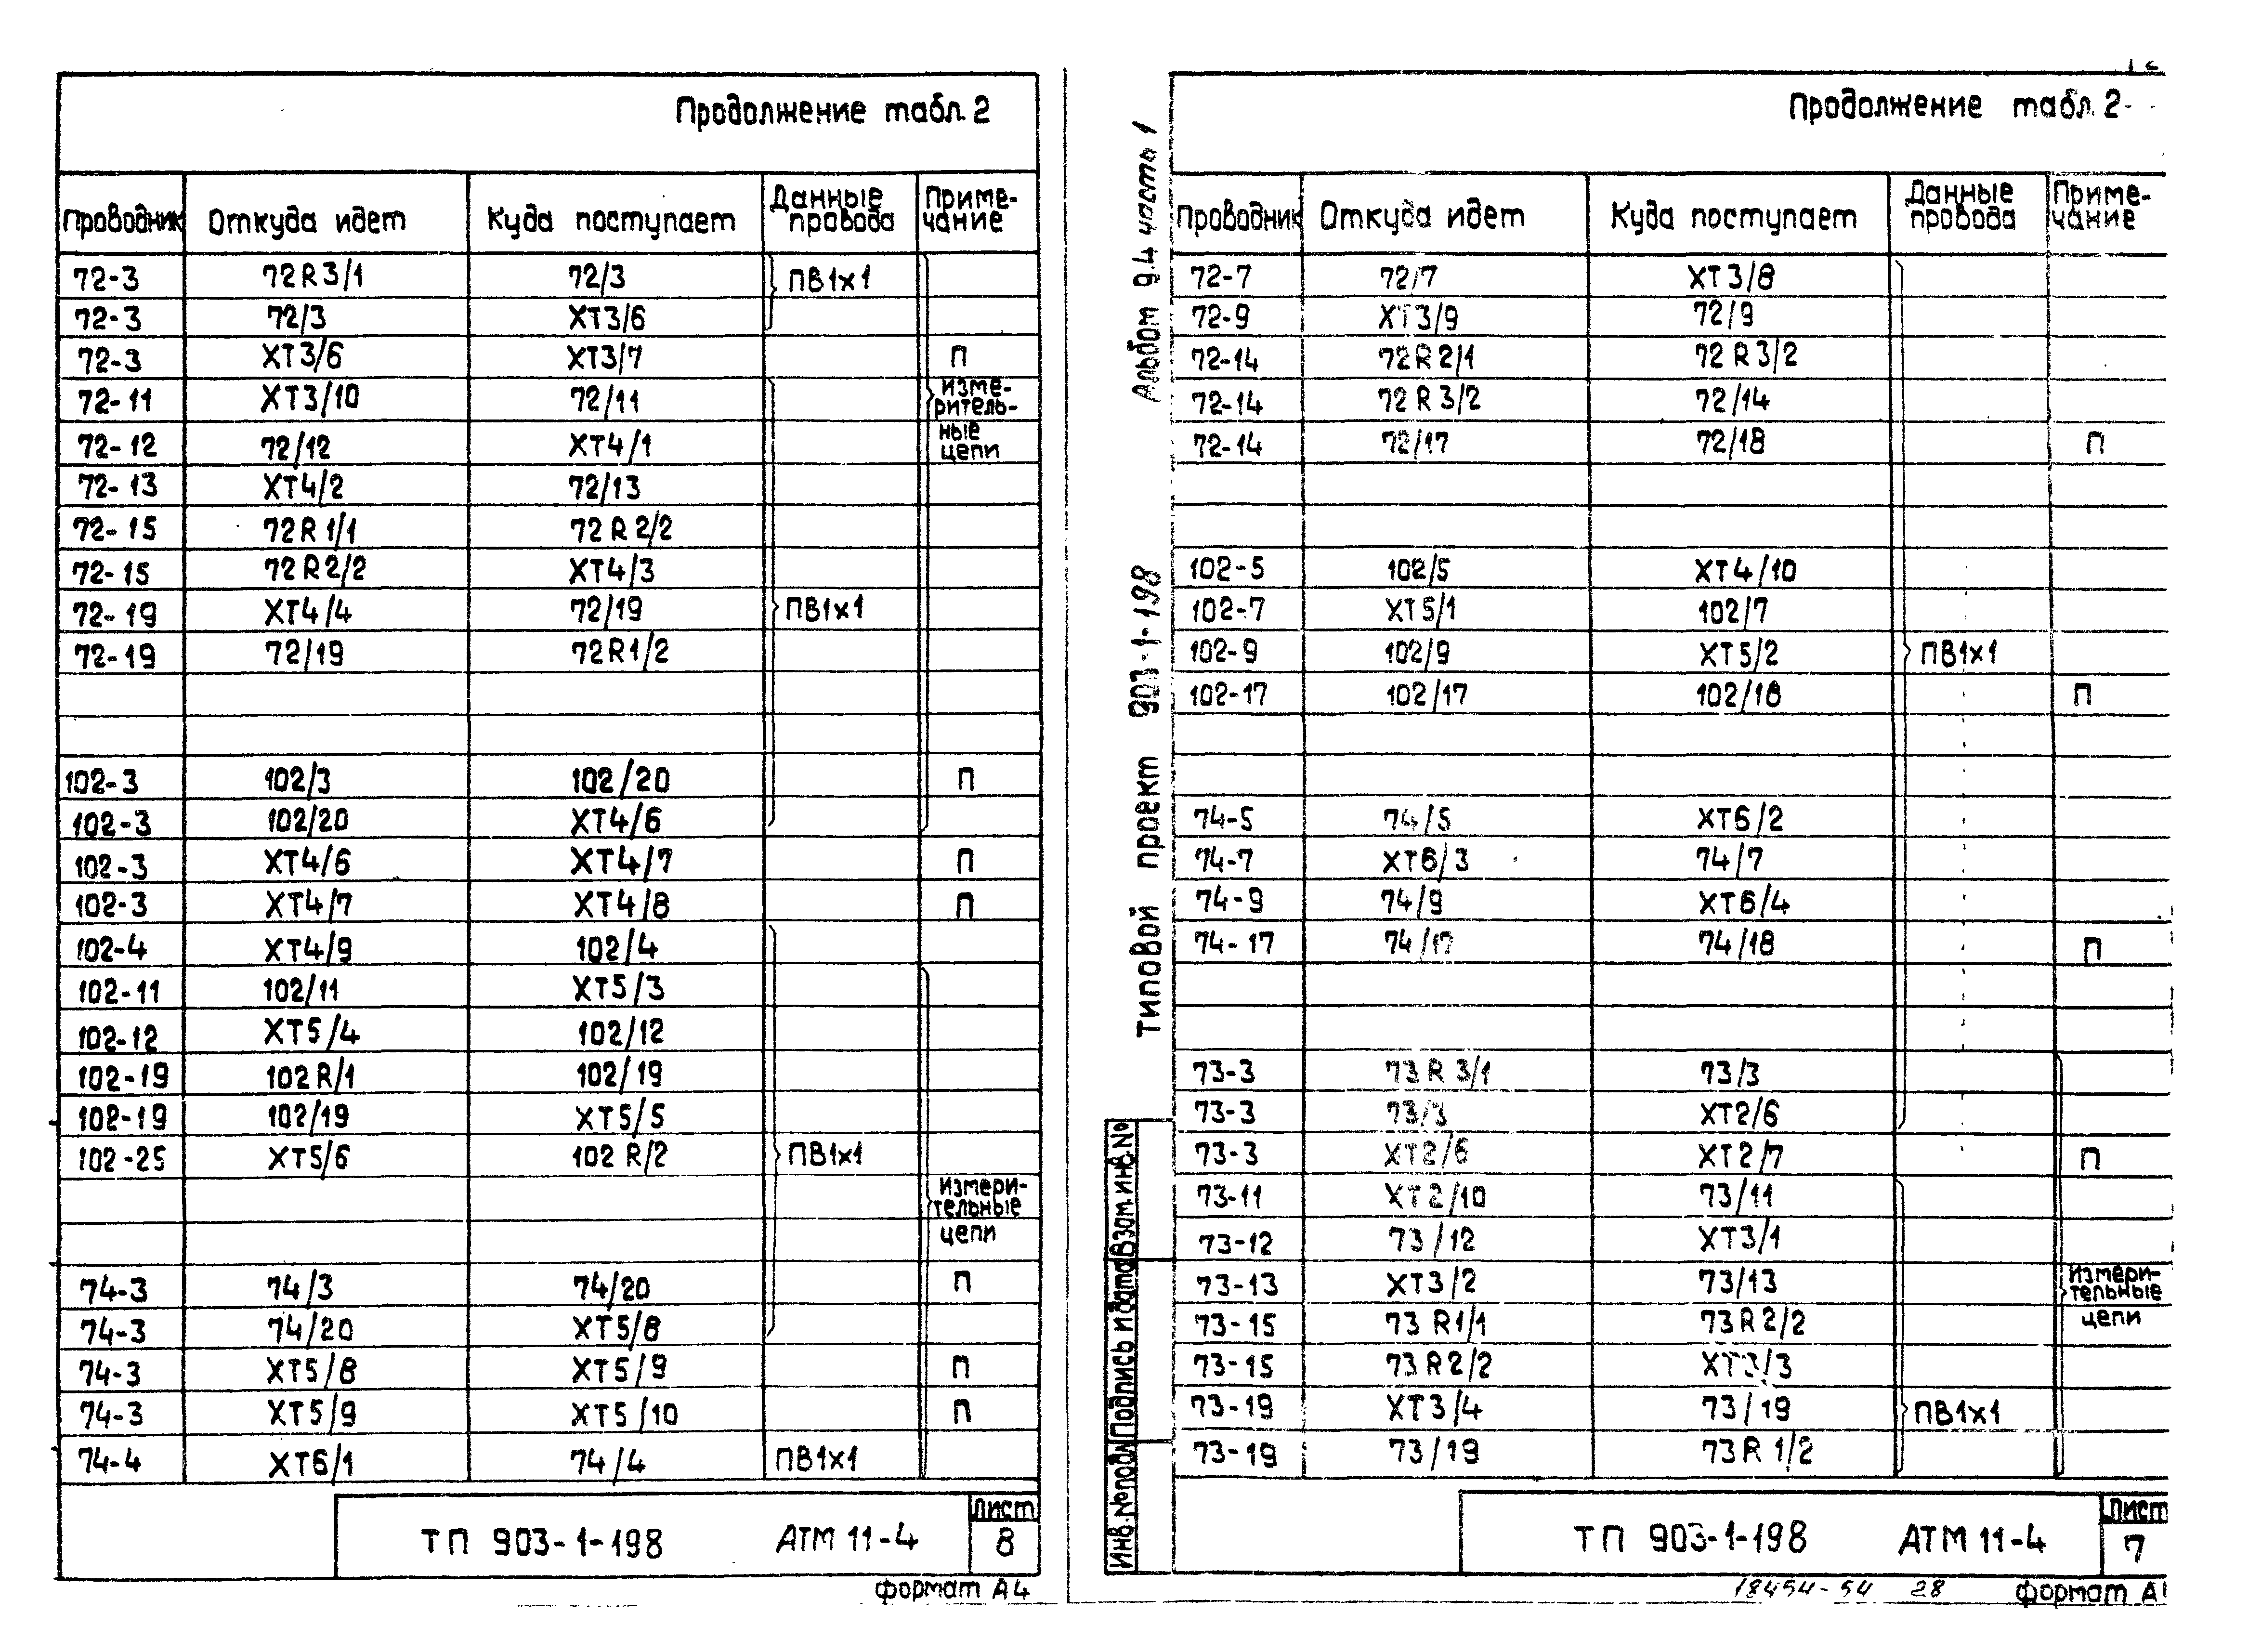 Продолжение табл. 2
Проводник Откуда идет Куда поступает Данные провода Приме-чание
72-3 72R3/1 72/3 ПВ1х1
72-3 72/3 ХТ3/6
72-3 ХТ3/6 ХТ3/7 П
72-11 ХТ3/10 72/11 Изме-ритель-
72-12 72/12 ХТ4/1 ные цепи
72-13 ХТ4/2 72/13
72-15 72R1/1 72R2/2
72-15 72R2/2 ХТ4/3
72-19 ХТ4/4 72/19 ПВ1х1
72-19 72/19 72R1/2
102-3 102/3 102/20 П
102-3 102/20 ХТ4/6
102-3 ХТ4/6 ХТ4/7 П
102-3 ХТ4/7 ХТ4/8 П
102-4 ХТ4/9 102/4
102-11 102/11 ХТ5/3
102-12 ХТ5/4 102/12
102-19 102R/1 102/19
102-19 102/19 ХТ5/5
102-25 ХТ5/6 102R/2 ПВ1х1
Измери-
тельные
цепи
74-3 74/3 74/20 П
74-3 74/20 ХТ5/8
74-3 ХТ5/8 ХТ5/9 П
74-3 ХТ5/9 ХТ5/10 П
74-4 ХТ6/1 74/4 ПВ1х1
ТП 903-1-198 АТМ 11-4 Лист 8
формат А4
Альбом 9.4 часть 1
типовой проект 903-1-198
Инв.№подл Подпись и дата Взам.инв.№
Продолжение табл. 2
Проводник Откуда идет Куда поступает Данные провода Приме-чание
72-7 72/7 ХТ3/8
72-9 ХТ3/9 72/9
72-14 72R2/1 72R3/2
72-14 72R3/2 72/14
72-14 72/17 72/18 П
102-5 102/5 ХТ4/10
102-7 ХТ5/1 102/7
102-9 102/9 ХТ5/2 ПВ1х1
102-17 102/17 102/18 П
74-5 74/5 ХТ6/2
74-7 ХТ6/3 74/7
74-9 74/9 ХТ6/4
74-17 74/17 74/18 П
73-3 73R3/1 73/3
73-3 73/3 ХТ2/6
73-3 ХТ2/6 ХТ2/7 П
73-11 ХТ2/10 73/11
73-12 73/12 ХТ3/1
73-13 ХТ3/2 73/13 Измери-тельные
73-15 73R1/1 73R2/2 цепи
73-15 73R2/2 ХТ3/3
73-19 ХТ3/4 73/19 ПВ1х1
73-19 73/19 73R1/2
ТП 903-1-198 АТМ 11-4 Лист 7
18454-54 28 формат А